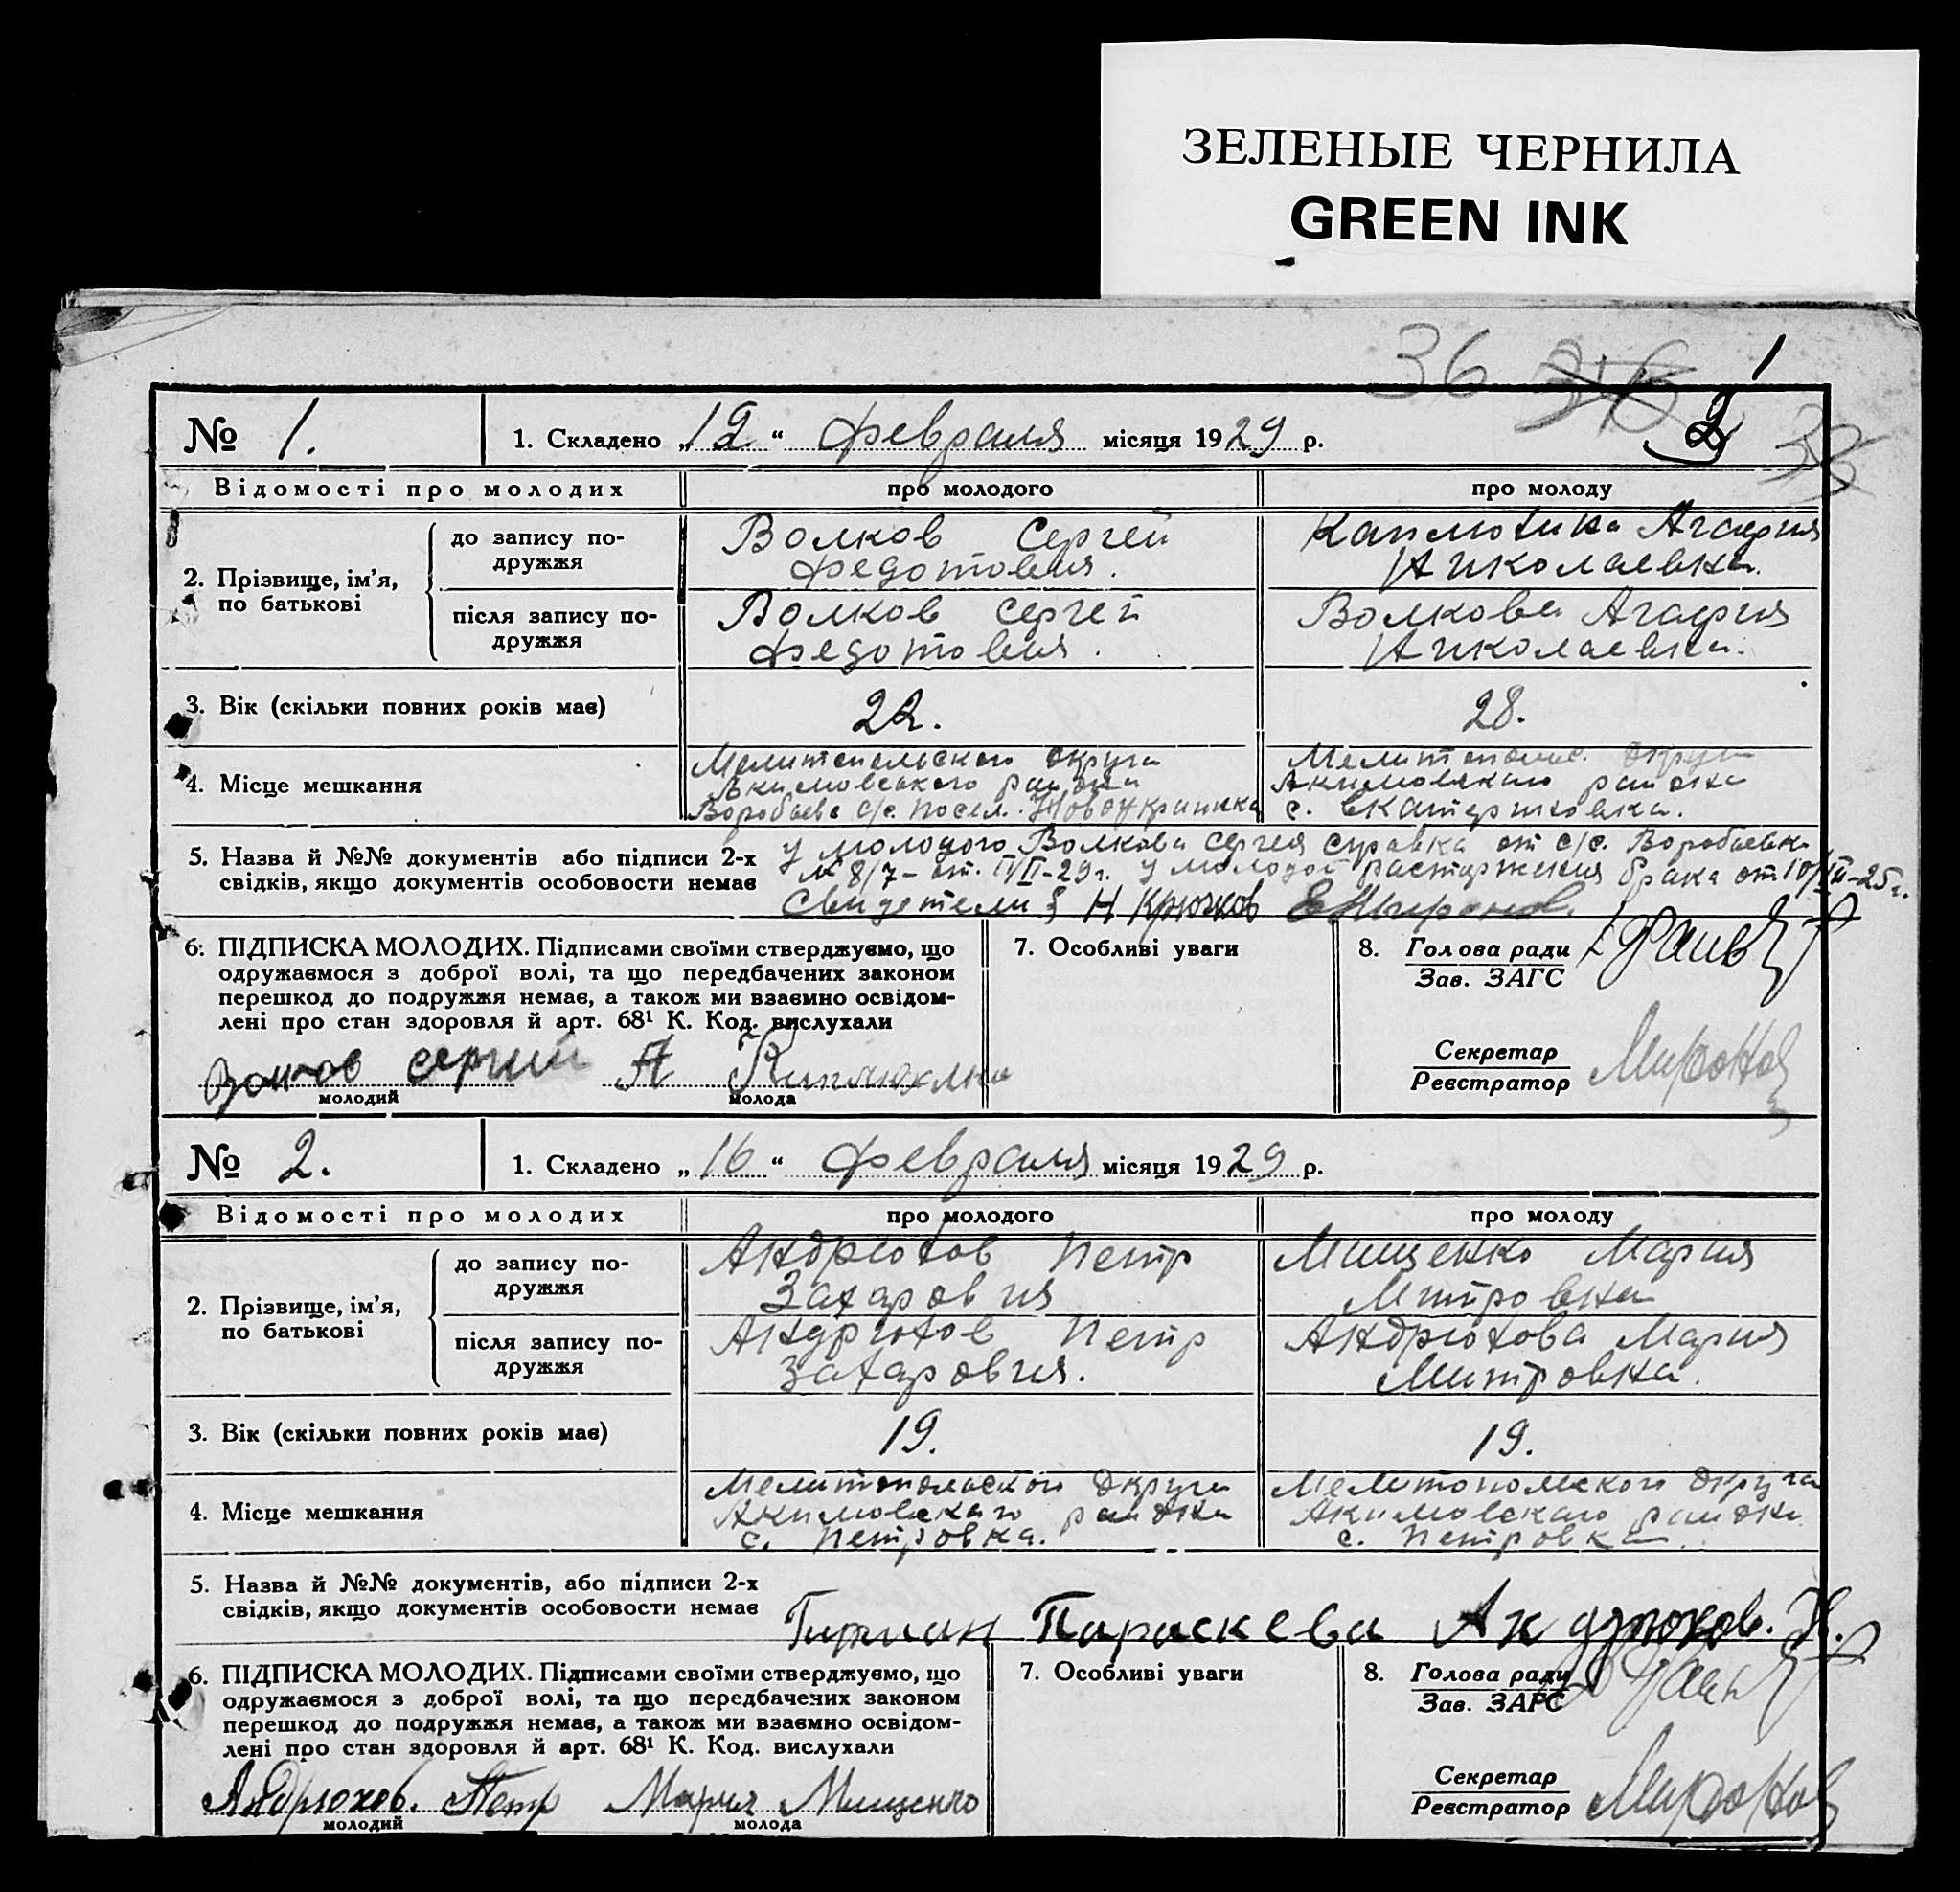 ЗЕЛЕНЫЕ ЧЕРНИЛА
GREEN INK
36
1
№ 1. 1. Складено „12“ февраля місяця 1929 р. 2
Відомості про молодих про молодого про молоду
2. Прізвище, ім'я, по батькові
до запису подружжя
Волков Сергей Агафия
Федотович. Николаевна.
після запису по-
дружжя
Волков Сергей Волкова Агафия
Федотович. Николаевна.
3. Вік (скільки повних років має) 22. 28.
4. Місце мешкання
Мелитопольского округа
Акимовского района
с/с. посел. Новоукраинка
Мелитопольс. округа
Акимовского района
с. Екатериновка.
5. Назва й №№ документів або підписи 2-х
свідків, якщо документів особовости немає
У молодого Волкова Сергея справка от с/с.
№ 8/7 - от. у молодой расторжения брака от
Свидетели: Н Крючков
6. ПІДПИСКА МОЛОДИХ. Підписами своїми стверджуємо, що
одружаємося з доброї волі, та що передбачених законом
перешкод до подружжя немає, а також ми взаємно освідом-
лені про стан здоровля й арт. 68¹ К. Код. вислухали
Сергий А
молодий молода
7. Особливі уваги
8. Голова ради
Зав. ЗАГС
Секретар
Реєстратор
Миронов
№ 2. 1. Складено „16“ февраля місяця 1929 р.
Відомості про молодих про молодого про молоду
2. Прізвище, ім'я,
по батькові
до запису по-
дружжя
Андрюхов Петр Мищенко Мария
Захарович Митровна
після запису по-
дружжя
Андрюхов Петр Андрюхова Мария
Захарович. Митровна.
3. Вік (скільки повних років має) 19. 19.
4. Місце мешкання
Мелитопольского округа
Акимовского района
с. Петровка.
Мелитопольского округа
Акимовского района
с. Петровка.
5. Назва й №№ документів, або підписи 2-х
свідків, якщо документів особовости немає
Параскева Андрюхов.
6. ПІДПИСКА МОЛОДИХ. Підписами своїми стверджуємо, що
одружаємося з доброї волі, та що передбачених законом
перешкод до подружжя немає, а також ми взаємно освідом-
лені про стан здоровля й арт. 68¹ К. Код. вислухали
Андрюхов. Петр Мария Мищенко
молодий молода
7. Особливі уваги
8. Голова ради
Зав. ЗАГС
Секретар
Реєстратор
Миронов